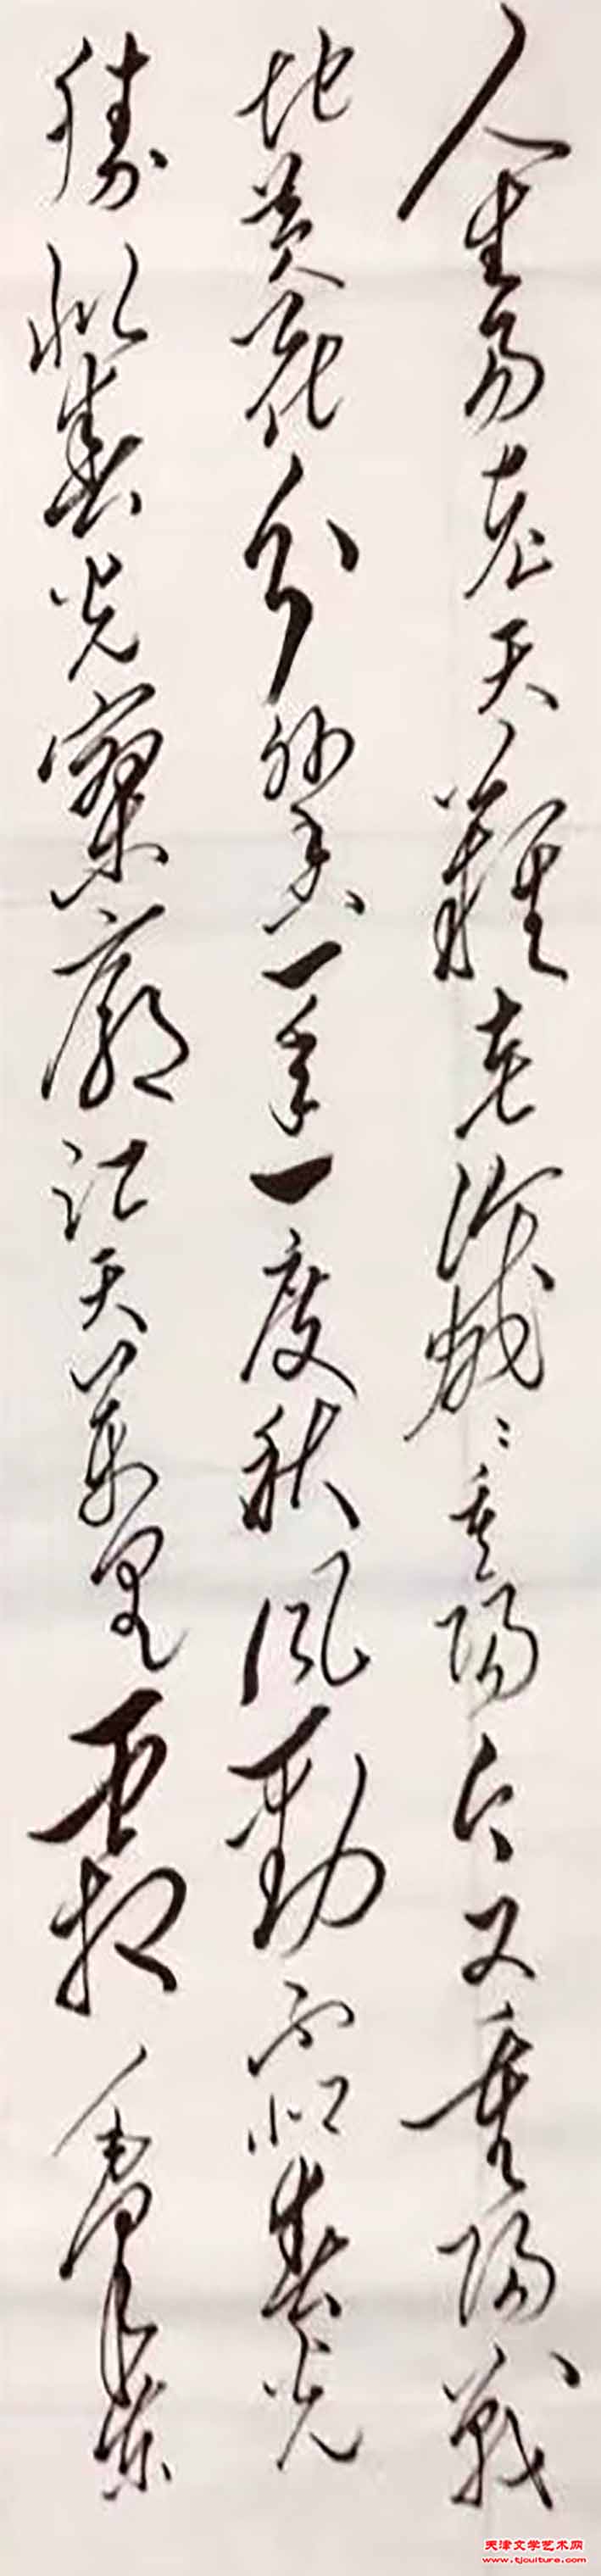 人生易老天難老歲〻重陽今又重陽戰
地黄花分外香一年一度秋風勁不似春光
勝似春光寥廓江天萬里霜 毛澤東
天津文学艺术网
www.tjculture.com